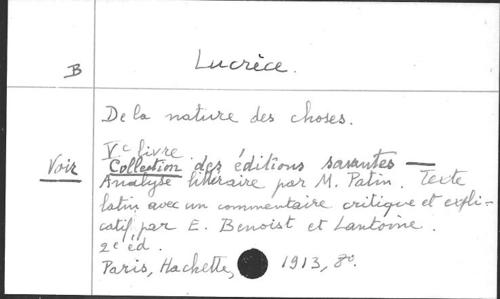 B
Lucrèce.
De la nature des choses.
Ve livre.
Voir Collection des éditions savantes —
Analyse littéraire par M. Patin. Texte
latin avec un commentaire critique et expli-
catif par E. Benoist et Lantoine.
2e éd.
Paris, Hachette, 1913, 8o.